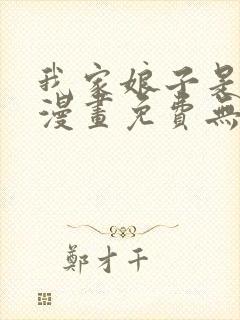 我家娘子是
漫畫免費無
鄭才千